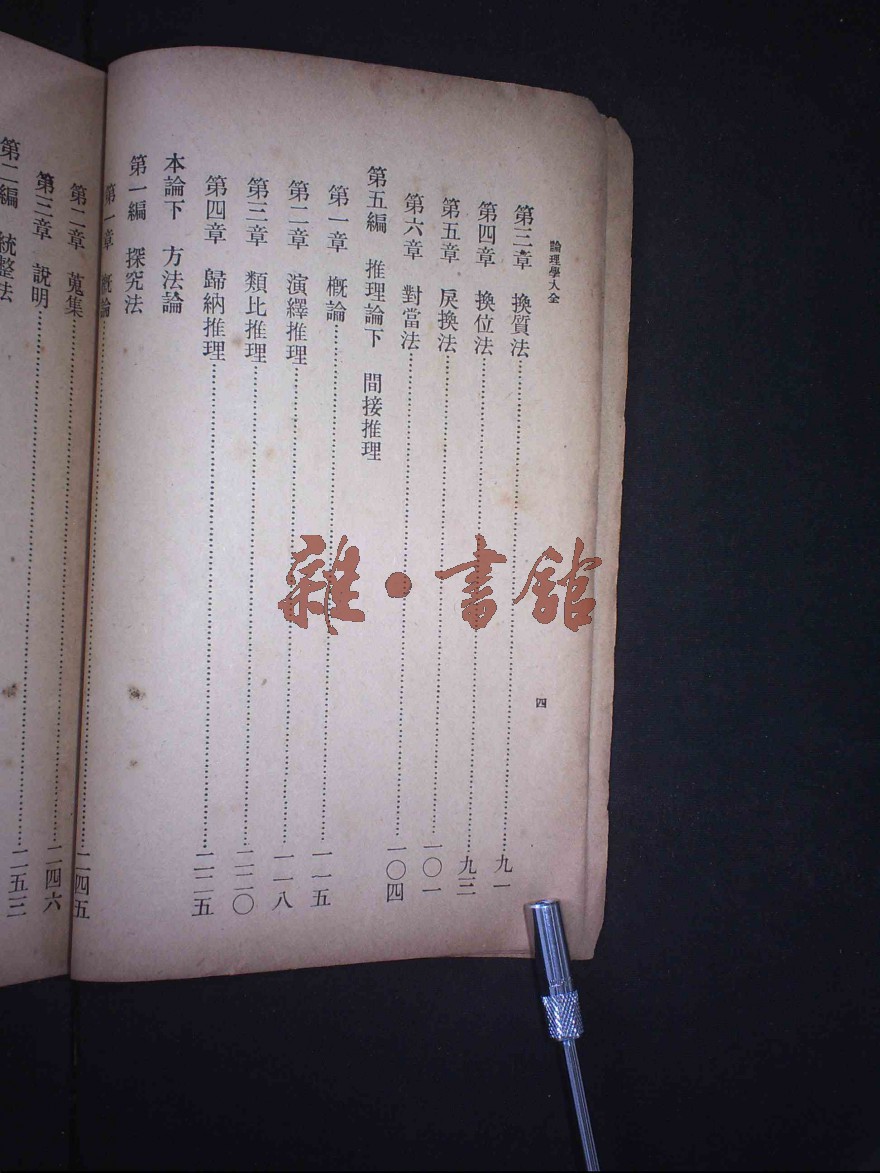 論理學大全
四
第三章 換質法……九一
第四章 換位法……九三
第五章 戾換法……一〇一
第六章 對當法……一〇四
第五編 推理論下 間接推理
第一章 概論……一一五
第二章 演繹推理……一一八
第三章 類比推理……二二〇
第四章 歸納推理……二二五
本論下 方法論
第一編 探究法
第一章 概論……二四五
第二章 蒐集……二四六
第三章 說明……二五三
第二編 統整法
雜·書館